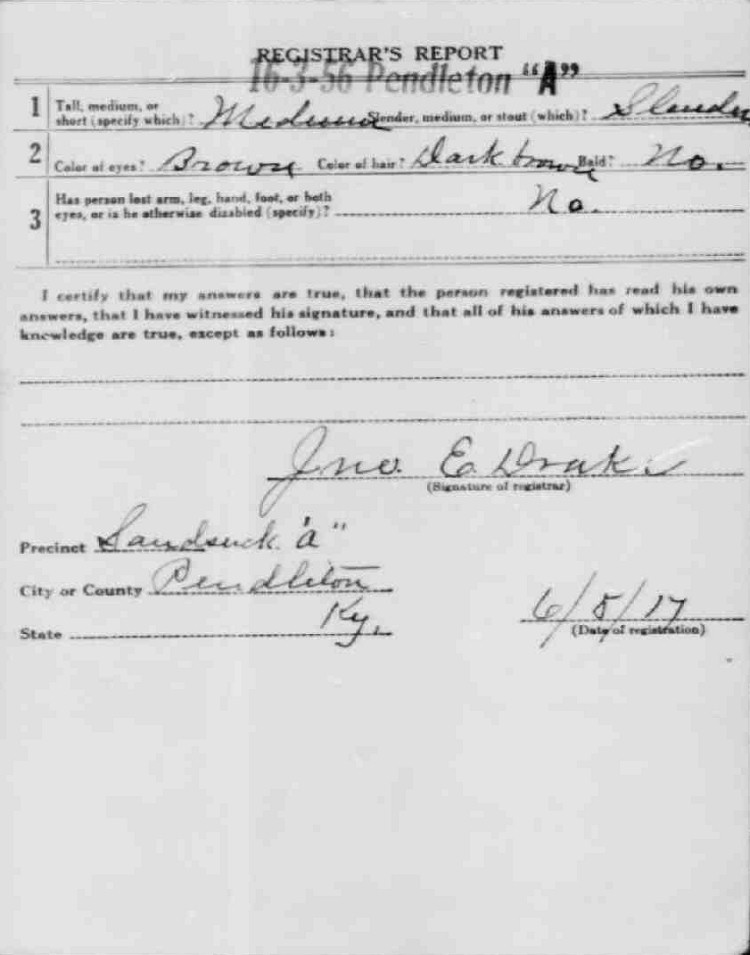 REGISTRAR'S REPORT
16-3-56 Pendleton "A"
1 Tall, medium, or short (specify which)? Medium Slender, medium, or stout (which)? Slender
2 Color of eyes? Brown Color of hair? Dark brown Bald? No.
3 Has person lost arm, leg, hand, foot, or both
eyes, or is he otherwise disabled (specify)? No.
I certify that my answers are true, that the person registered has read his own
answers, that I have witnessed his signature, and that all of his answers of which I have
knowledge are true, except as follows:
Jno. E. Drake
(Signature of registrar)
Precinct Sandsuck "a"
City or County Pendleton
State Ky.
6/5/17
(Date of registration)